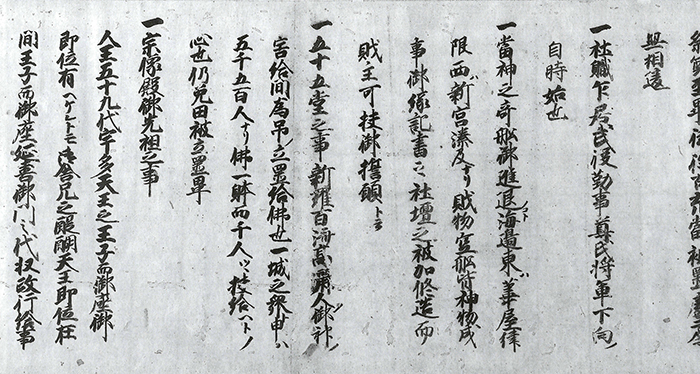 無相違
一社職乍居武役勤事尊氏将軍下向ノ
自時始也
一當神之奇 御進退海邊東ハ葦屋津
限西ハ新宮湊及ヨリ賊物寄船皆神物成
事御縁記書 社壇之被加修造而
賊主可扶御誓願ト
一五十五堂之事新羅百済高麗人御神ノ
害給間為弔立置給佛也一城之衆申ハ
五千五百人ヨリ佛一躰而千人ツヽ 給ヘトノ
心也仍免田被立置畢
一宗像殿御先祖之事
人王五十九代宇多天王之王子而御座御
即位有ヘケレトモ御舎兄之醍醐天王即位在
間王子而御座延喜御門之代被改行給事